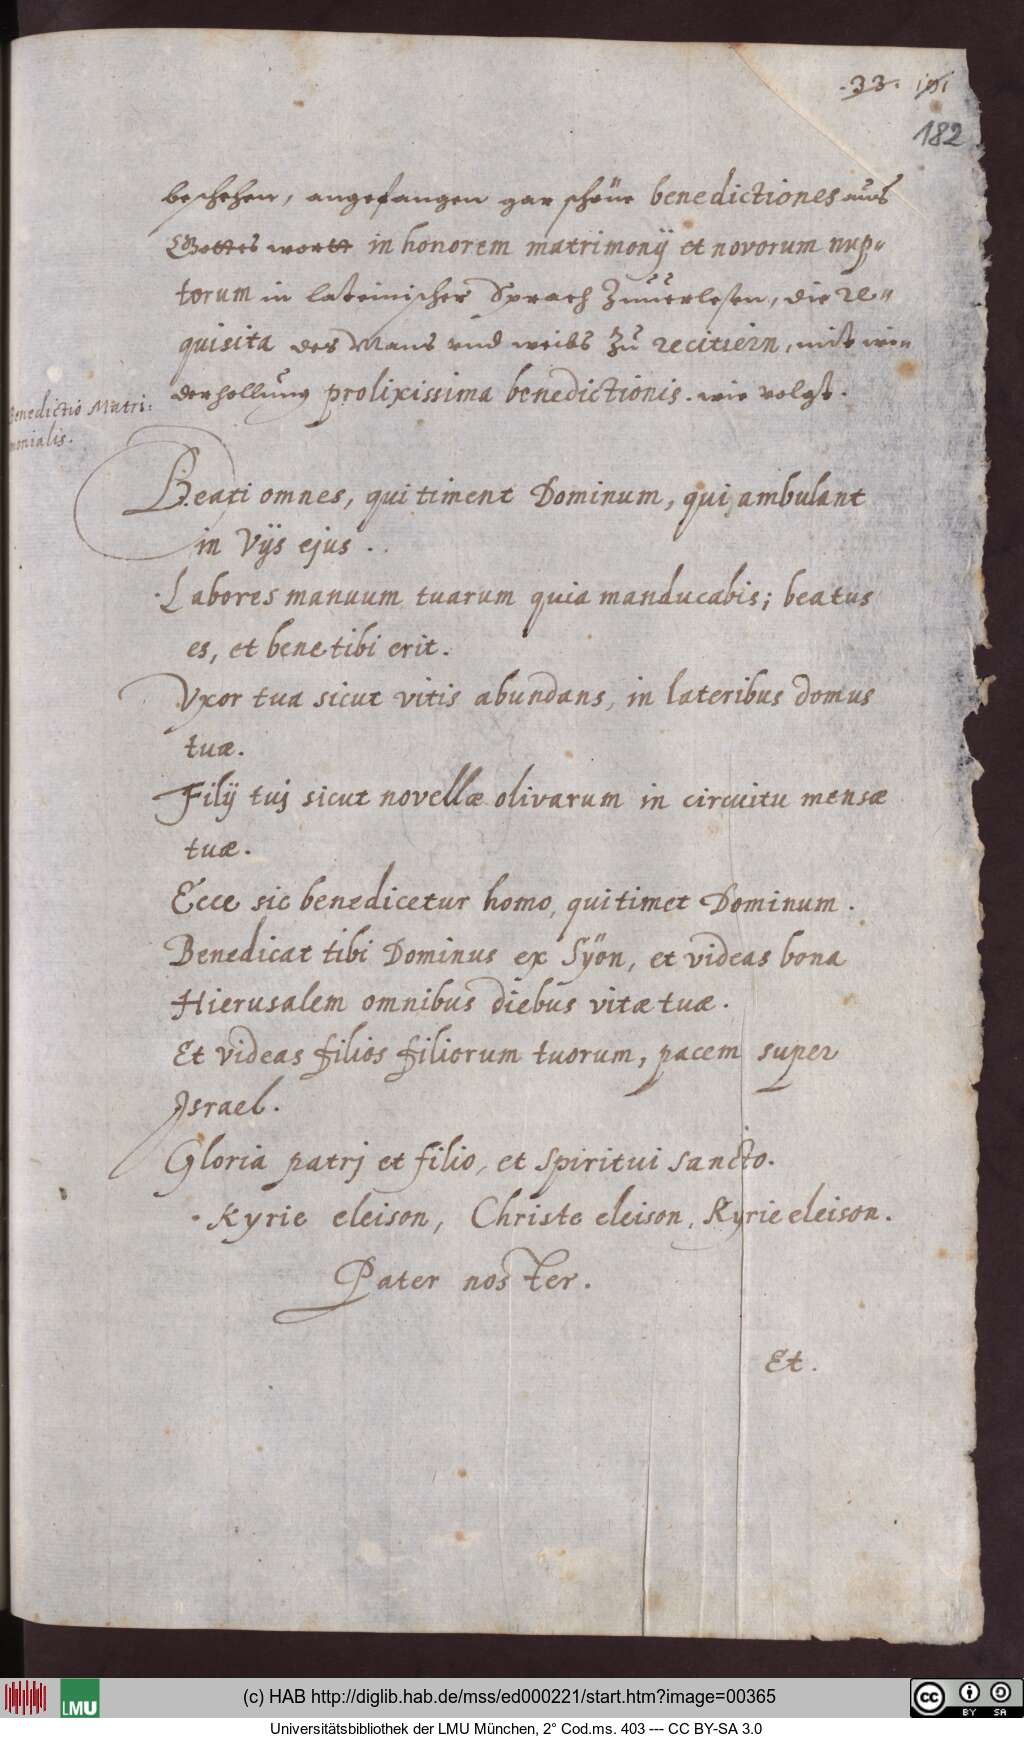 .33. 191
182
beschehen, angefangen gar schöne benedictiones aus
Gottes wortt in honorem matrimonij et novorum nup„
torum in lateinischer Sprach Zuuerlesen, die re„
quisita des Mans vnd weibs Zu recitiern, mit wi„
derhollung prolixissima benedictionis. wie volgt.
Benedictio Matri:
monialis.
Beati omnes, qui timent Dominum, qui ambulant
in Vijs ejus .
Labores manuum tuarum quia manducabis; beatus
es, et bene tibi erit.
Vxor tua sicut vitis abundans, in lateribus domus
tuæ.
Filij tuj sicut novellæ olivarum in circuitu mensæ
tuæ.
Ecce sic benedicetur homo, qui timet Dominum.
Benedicat tibi Dominus ex Sÿon, et videas bona
Hierusalem omnibus diebus vitæ tuæ.
Et videas filios filiorum tuorum, pacem super
Israel.
Gloria patrj et filio, et spiritui sancto.
Kyrie eleison, Christe eleison, Kyrie eleison.
Pater noster.
Et.
LMU
(c) HAB http://diglib.hab.de/mss/ed000221/start.htm?image=00365
cc BY SA
Universitätsbibliothek der LMU München, 2° Cod.ms. 403 --- CC BY-SA 3.0